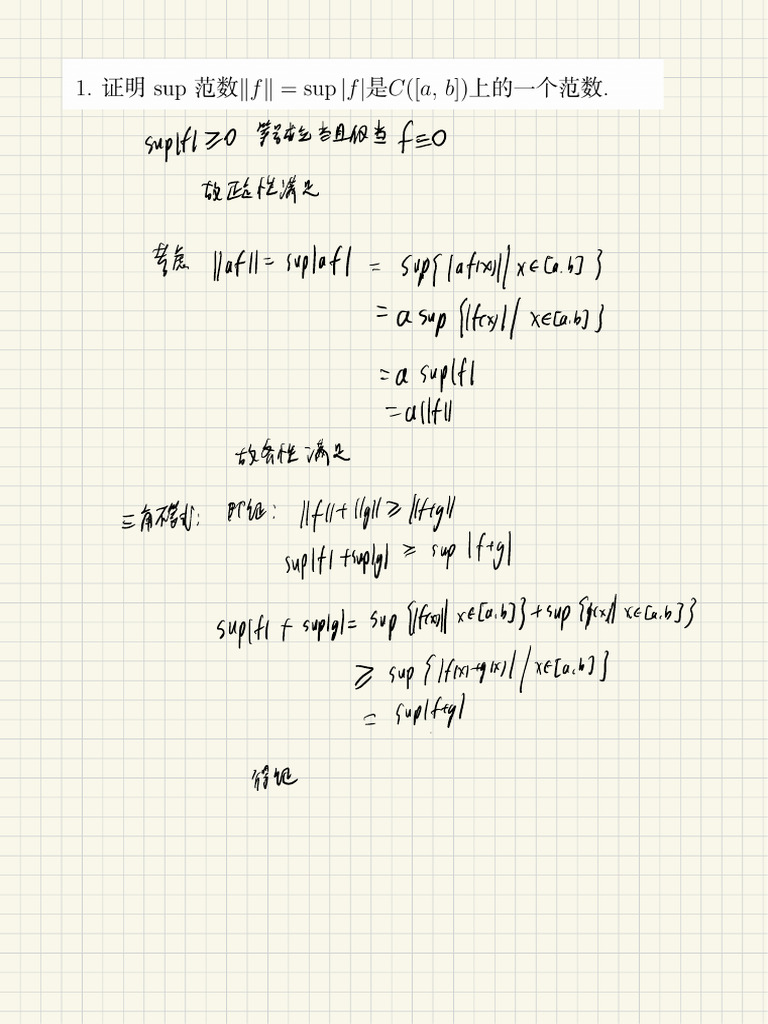 1. 证明 sup 范数‖f‖ = sup |f|是C([a, b])上的一个范数.
sup|f| ≥ 0 等号成立当且仅当 f≡0
故正定性满足
考虑 ||af|| = sup|af| = sup{|af(x)| | x∈[a.b]}
= a sup {|f(x)| | x∈[a.b]}
= a sup|f|
= a||f||
故齐性满足
三角不等式: 即证: ||f||+||g|| ≥ ||f+g||
sup|f| + sup|g| ≥ sup |f+g|
sup|f| + sup|g| = sup {|f(x)| | x∈[a.b]} + sup {|g(x)| | x∈[a.b]}
≥ sup {|f(x)+g(x)| | x∈[a.b]}
= sup|f+g|
得证